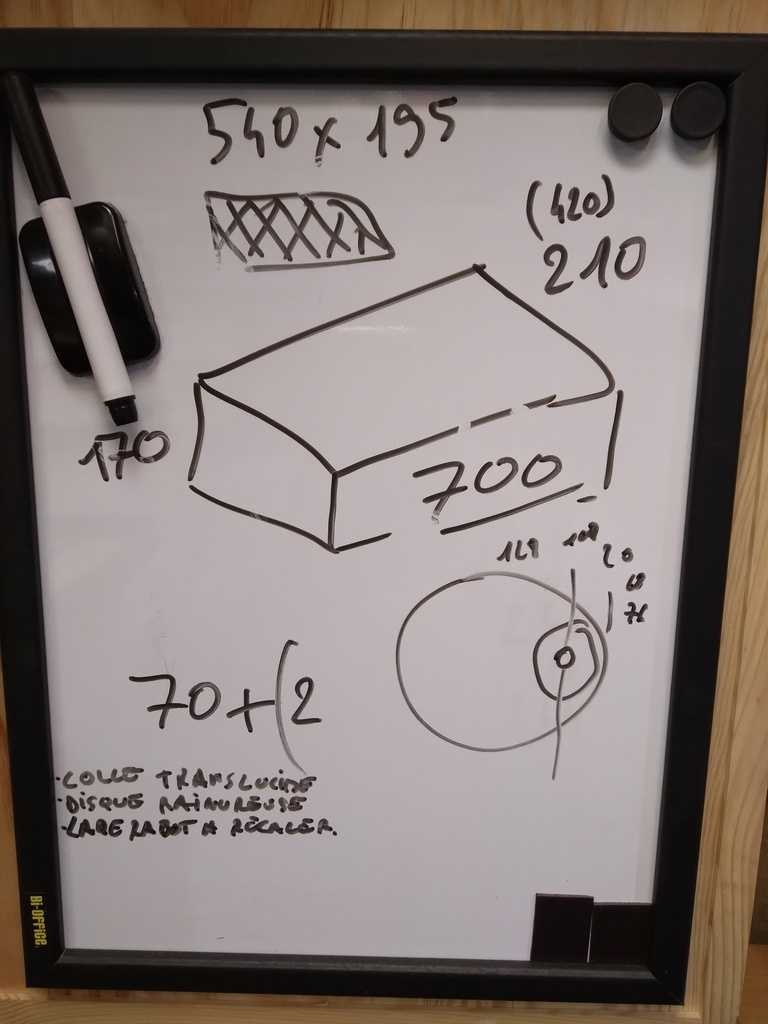 540 x 195
(420)
210
170
700
20
70 + (2
· COLLE TRANSLUCIDE
· DISQUE RAINUREUSE
· LAME RABOT A RÉCALER.
Bi-OFFICE